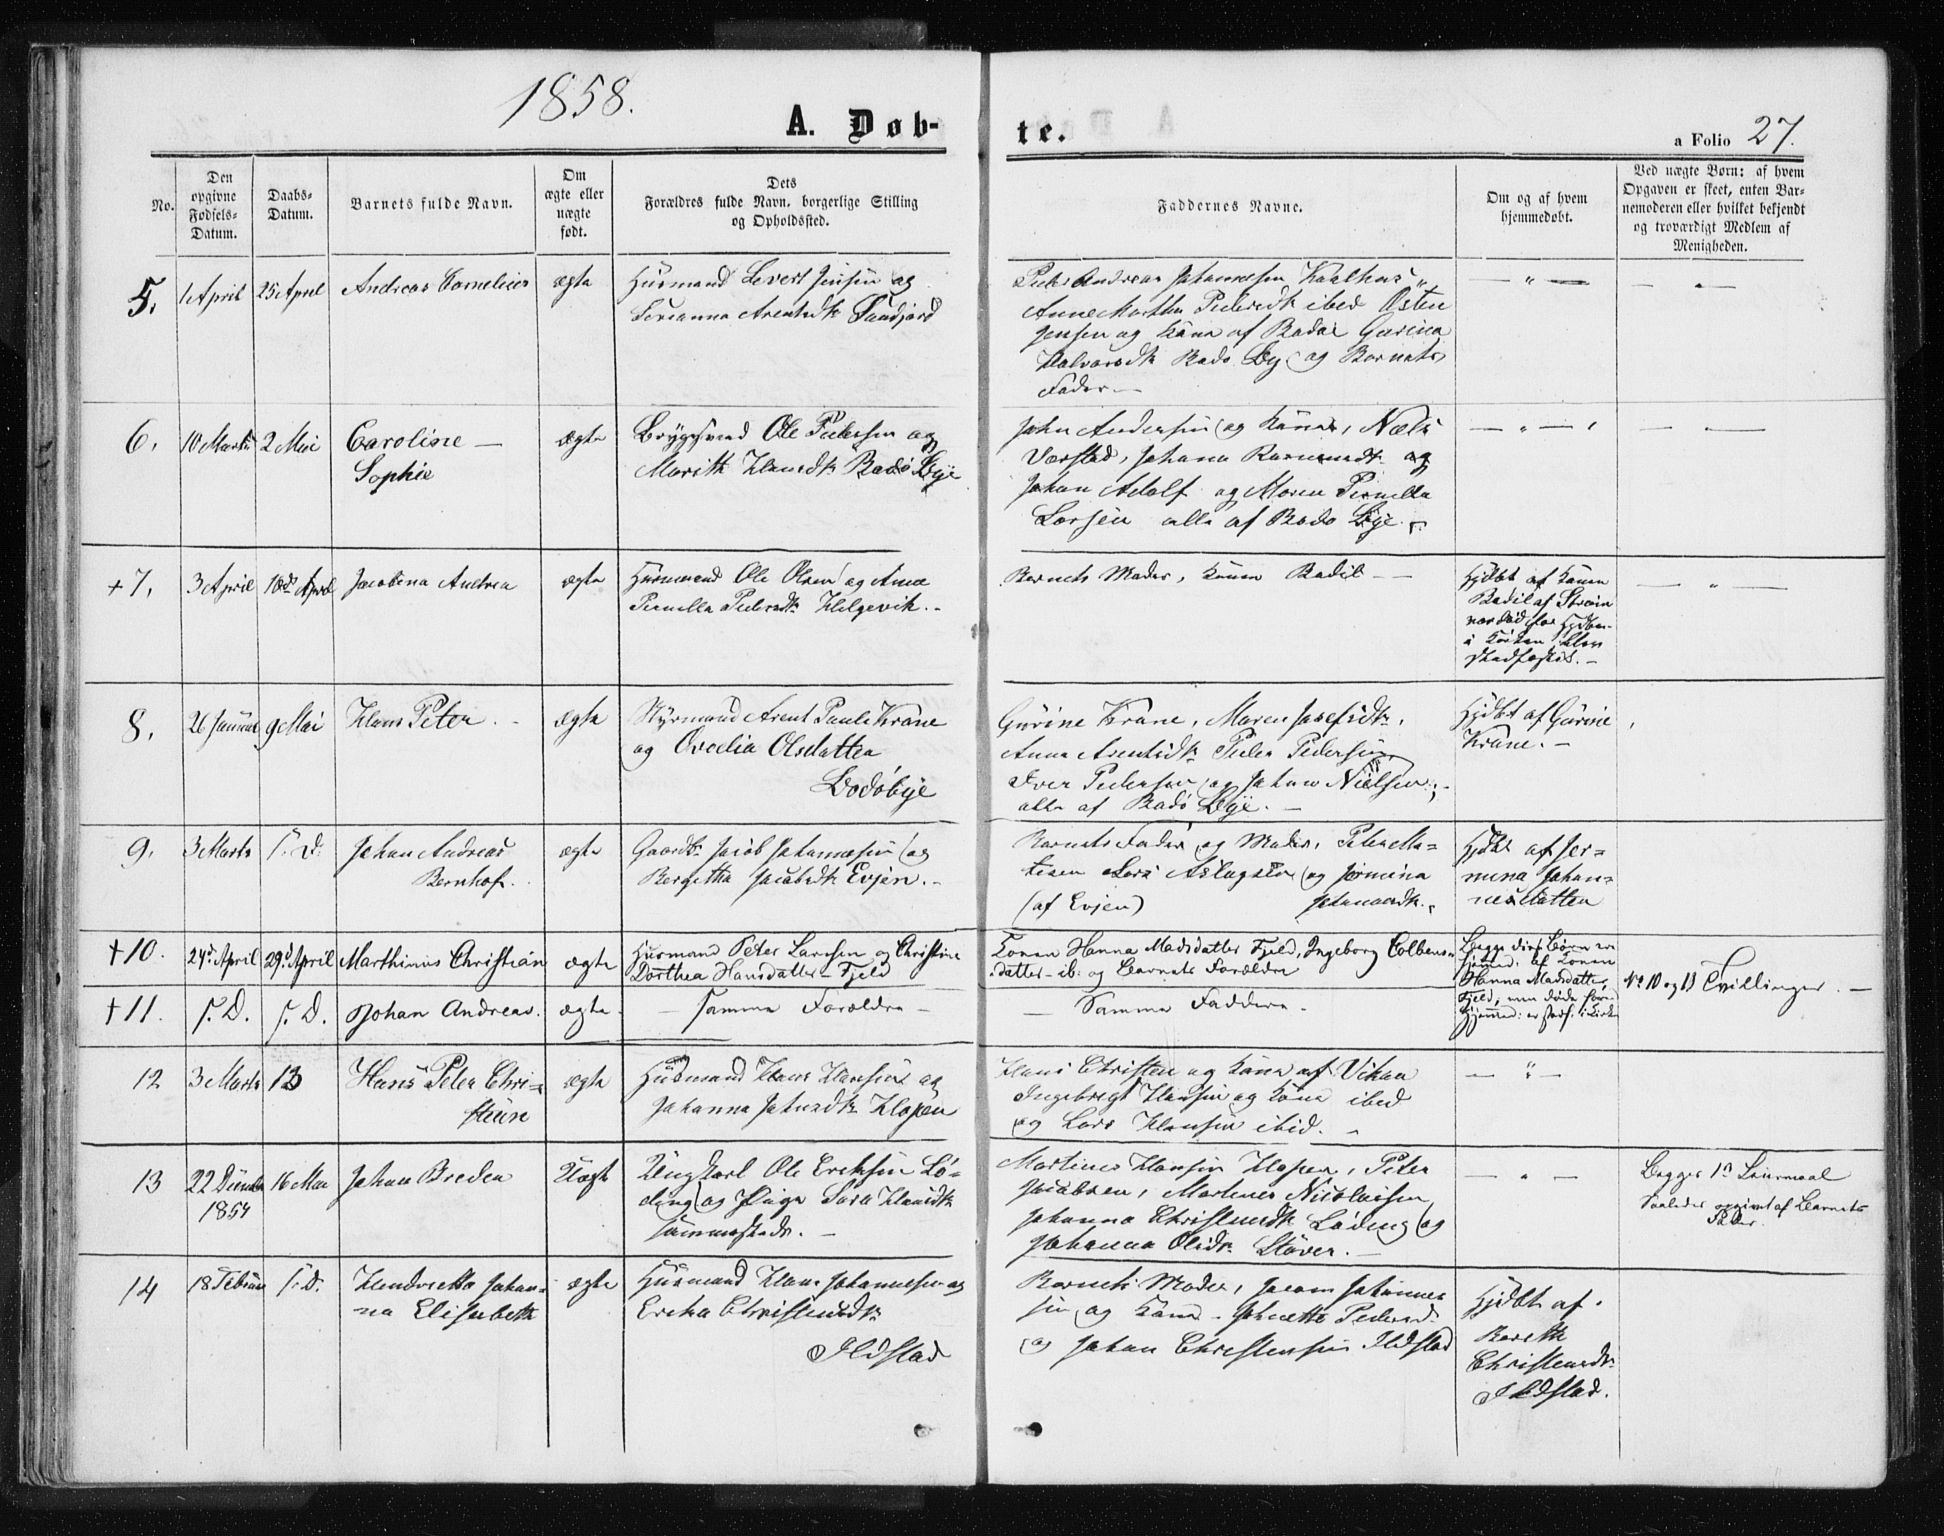 1858.
A. Døb-
te.
a Folio 27.
No.
Den
opgivne
Fødsels-
Datum.
Daabs-
Datum.
Barnets fulde Navn.
Om
ægte eller
uægte
født.
Dets
Forældres fulde Navn, borgerlige Stilling
og Opholdssted.
Faddernes Navne.
Om og af hvem
hjemmedøbt.
Ved uægte Børn: af hvem
Opgaven er skeet, enten Bar-
nemoderen eller hvilket bekjendt
og troværdigt Medlem af
Menigheden.
5. 1 April 25 April Andreas Cornelius ægte Huusmand Sivert Jensen og
Arentsdtr
Peder Andreas Johannesen
Anne Martha Pedersdtr ibed Osten
Jensen og Kone af Bodøe Gurina
Halvorsdtr Bodø By og Barnets
Fader —
6. 10 Marts 2 Mai Caroline —
Sophie
ægte
Ole Pedersen og
Marith Hansdtr Bodø Bye
John Andersen og Kone, Niels
Værstad, Johana og
Johan Adolf og Maren Pernella
Larsen alle af Bodø Bye.
+7. 3 April April Jacobina Andrea ægte Huusmand Ole Olsen og Ane
Pernella Pedersdtr Helgevik.
Barnets Moder, Konen Bodil —
Hjdbt af Konen
Bodil af
8. 26 Januar 9 Mai Hans Peter. ægte Styrmand Arent Paul Krane
og Ovedia Olsdatter
Bodøbye
Gurine Krane, Maren Josefsdtr,
Anna Arentsdtr Peder Pedersen
Iver Pedersen og Johan Nielsen,
alle af Bodø Bye. —
Hjdbt af Gurine
Krane. —
9. 3 Marts s. D. Johan Andreas
Bernhof.
ægte Gaardm Jacob Johannesen og
Bergitha Jacobsdtr Evjen.
Barnets Fader og Moder, Peter Ma-
tisen og Jermina
(af Evjen) Johannesdtr.
Hjdbt af Jer-
mina Johan-
nesdatter
+10. 24d April 29d April Marthinus Christian ægte Huusmand Peter Larssen og Christine
Dorthea Hansdatter - Fjeld
Konen Hanna Madsdatter Fjeld, Ingeborg Colbens-
datter - ib: og Barnets Forældre
Begge disse Børn er
hjemmed: af Konen
Hanna Madsdatter
Fjeld, men døde
No 10 og 11 Tvillinger. —
+11. s. D. s. D. Johan Andreas. ægte. — samme Forældre —
— Samme Faddere.
12 3 Marts 13 Hans Peter Chri-
stian
ægte Huusmand Hans Hansen og
Johanna Hopen
Hans Christen og Kone af Vikan
Ingebregt Hansen og Kone ibed
og Lars Hansen ibid. —
13 22 Decembr
1857
16 Mai Johan Breder Uægte Ungkarl Ole Eriksen Lø-
ding og Pige Sara Hansdtr
sammesteds. —
Martinus Hansen Hopen, Peter
Jacobsen, Martines Nicolaisen
Johanna Christensdtr Løding og
Johanna Olsdtr Støver. —
Begges 1n Leiermaal
Saaledes opgivet af Barnets
Fader.
14 18 Februar s. D. Hendrette Johan-
na Elisabeth
ægte Huusmand Hans Johannesen og
Ericha Christensdtr
Ildstad
Barnets Moder, Johannes-
sen og Kone - Pedersd
og Johan Christensen Ildstad
Hjdbt af
Bereth
Christensdtr
Ildstad.